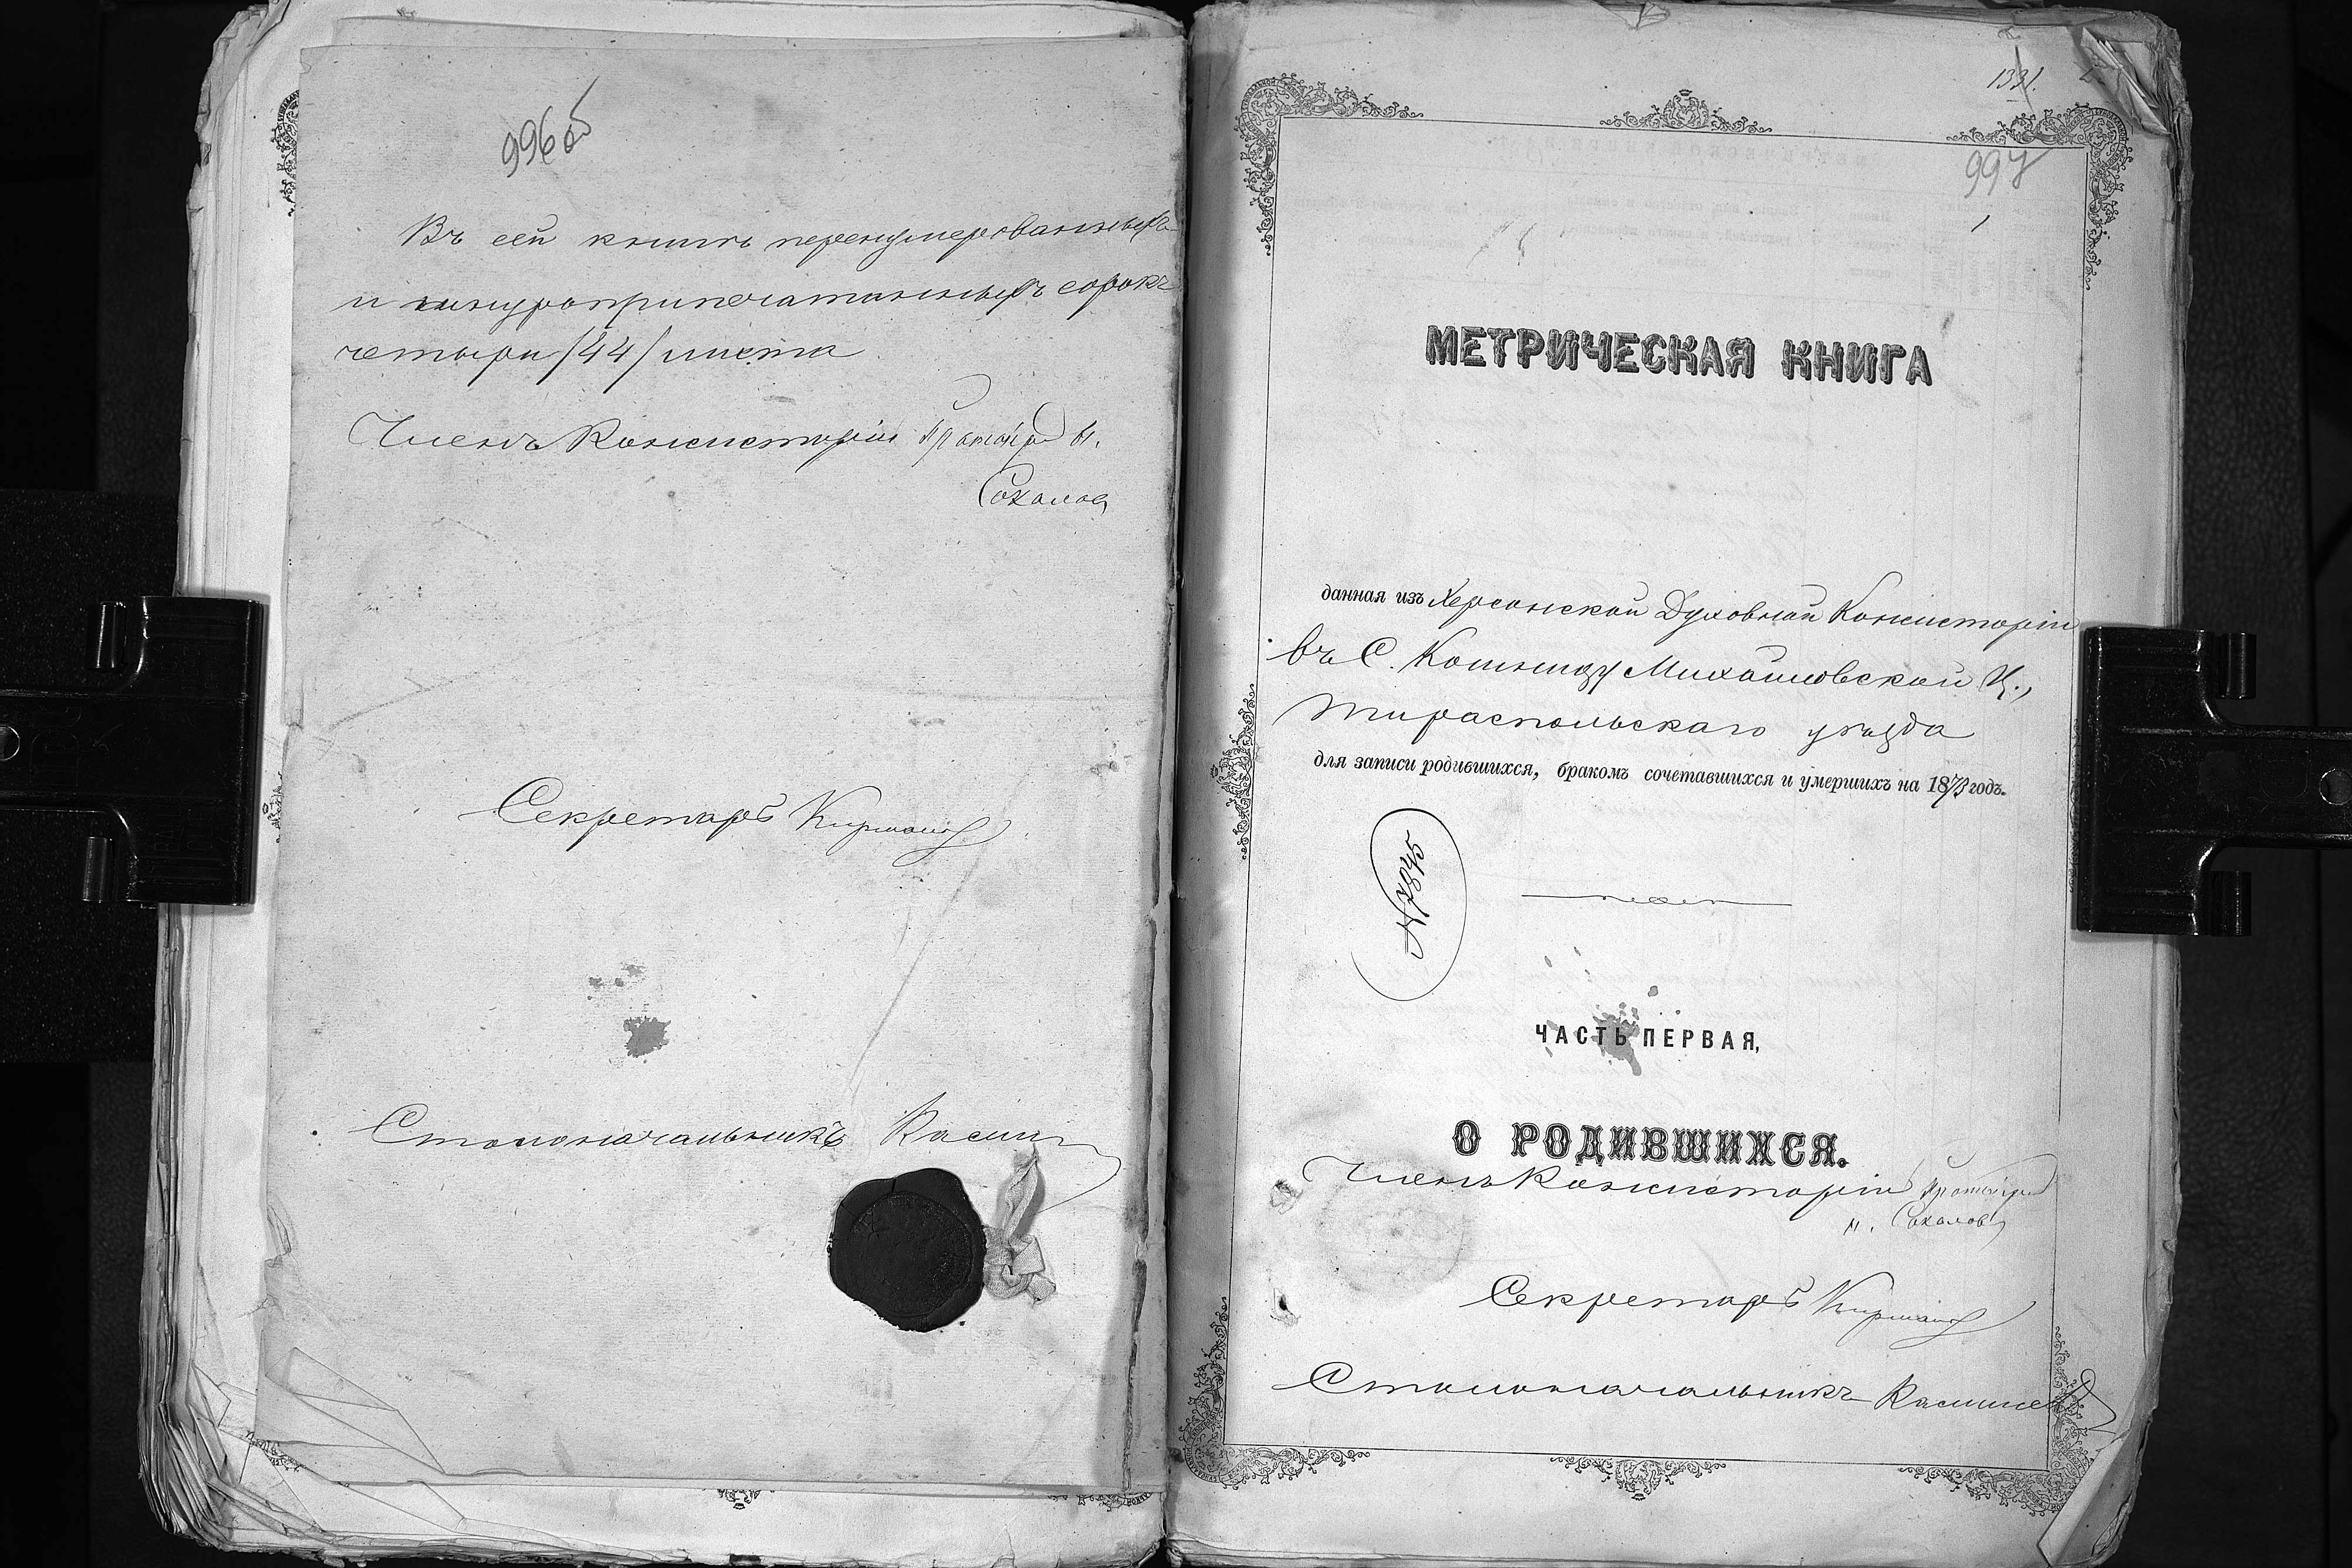 996об
Въ сей книгѣ перенумерованныхъ
и шнуроприпечатанныхъ сорокъ
четыри /44/ листа
Членъ Консисторіи Протоіерей Н.
Соколовъ
Секретарь
Столоначальникъ
1331.
997
1
МЕТРИЧЕСКАЯ КНИГА
данная изъ Херсонской Духовной Консисторіи
въ С. Кошницу Михайловской Ц.,
Тираспольскаго уѣзда
для записи родившихся, бракомъ сочетавшихся и умершихъ на 1873 годъ.
№7845
ЧАСТЬ ПЕРВАЯ,
О РОДИВШИХСЯ.
Членъ Консисторіи Протоіерей
Н. Соколовъ
Секретарь
Столоначальникъ